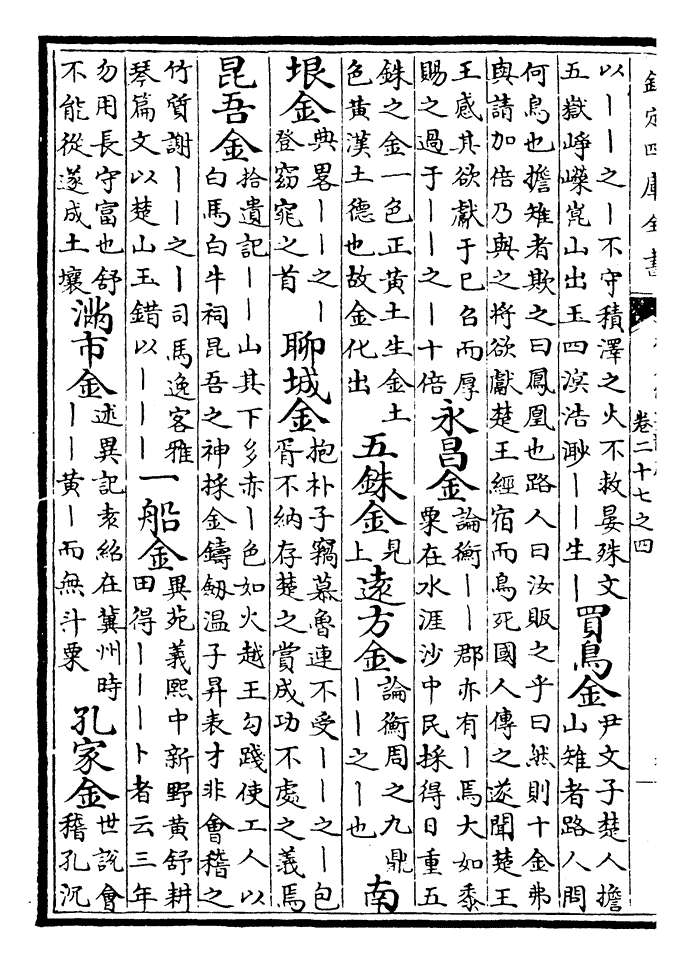 欽定四庫全書
卷二十七之四
以丨丨之丨不守積澤之火不救晏殊文
五嶽崢嶸崑山出玉四溟浩渺丨丨生丨
買鳥金
尹文子楚人擔
山雉者路人問
何鳥也擔雉者欺之曰鳳凰也路人曰汝販之乎曰然則十金弗
與請加倍乃與之將欲獻楚王經宿而鳥死國人傳之遂聞楚王
王感其欲獻于已召而厚
賜之過于丨丨之丨十倍
永昌金
論衡丨丨郡亦有丨焉大如黍
粟在水涯沙中民採得日重五
銖之金一色正黃土生金土
色黃漢土德也故金化出
五銖金
見
上
遠方金
論衡周之九鼎
丨丨之丨也
南
垠金
典畧丨丨之丨
登窈窕之首
聊城金
抱朴子竊慕魯連不受丨丨之丨包
胥不納存楚之賞成功不處之義焉
昆吾金
拾遺記丨丨山其下多赤丨色如火越王勾踐使工人以
白馬白牛祠昆吾之神採金鑄劒温子昇表才非會稽之
竹質謝丨丨之丨司馬逸客雅
琴篇文以楚山玉錯以丨丨丨
一船金
異苑義熙中新野黃舒耕
田得丨丨丨卜者云三年
勿用長守富也舒
不能從遂成土壤
滿市金
述異記袁紹在冀州時
丨丨黃丨而無斗粟
孔家金
世說會
稽孔沉